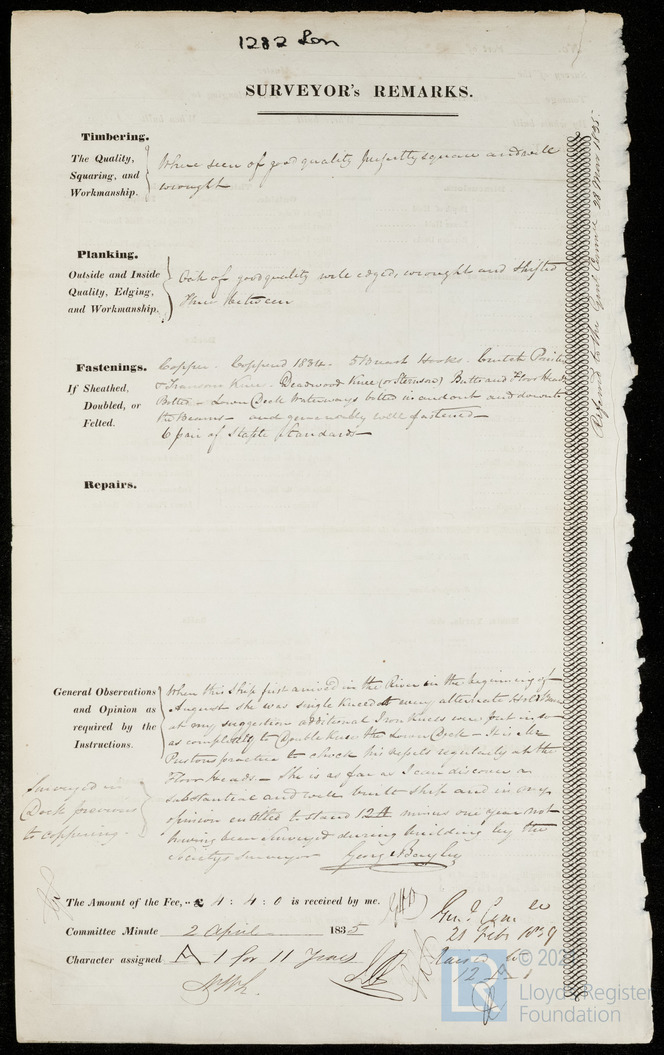 1282 Lon
SURVEYOR's REMARKS.
Timbering.
The Quality,
Squaring, and
Workmanship.
Where seen of good quality perfectly square and well
wrought
Planking.
Outside and Inside
Quality, Edging,
and Workmanship.
Oak of good quality well edged, wrought and shifted
Three between
Fastenings.
If Sheathed,
Doubled, or
Felted.
Copper. Coppered 1834. 5 Breast Hooks. Crutch Pointers
& Transom Knee. Deadwood Knee (or Sternson) Butts and Floor Heads
Bolted – Lower Deck Waterways bolted in and out and down to
the Beams – and generally well fastened –
6 pair of Staple Standards –
Repairs.
General Observations
and Opinion as
required by the
Instructions.
When this Ship first arrived in the River in the beginning of
August she was single kneed at every alternate Hold Beam
at my suggestion additional Iron Knees were put in so
as completely to Double Knee the Lower Deck – It is Mr
practice to chock his vessels regularly at the
Floor Heads – She is as far as I can discover a
substantial and well built ship and in my
opinion entitled to stand 12 A minus one year not
having been Surveyed during building by the
Society's Surveyor George Bayley
Surveyed in
Dock previous
to coppering.
The Amount of the Fee, £ 4 : 4 : 0 is received by me.
Committee Minute 2 April 1835
Character assigned A 1 for 11 Years
Genl Comee
21 Feby
12 A 1
Referred to the Genl Commee 28 Mar 1835.
© 202
Lloyd's Register
Foundation